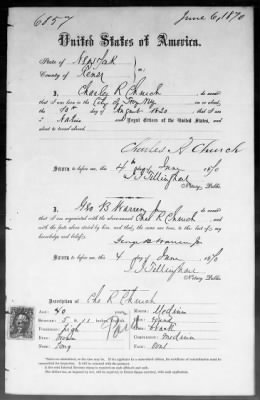 6857
June 6, 1870
United States of America.
State of New York
County of Renss
I, Charles R Church, do swear
that I was born in the City of Troy NY, on or about
the 30th day of August 1820; that I am
a Native and Loyal Citizen of the United States, and
about to travel abroad.
Charles R Church
Sworn to before me this 4th day of June 1870
J. J. Tillinghast
Notary Public.
I, Geo B Warren Jr, do swear
that I am acquainted with the above-named Chas R Church, and
with the facts above stated by him, and that the same are true, to the best of my
knowledge and belief.
George B Warren Jr
Sworn to before me this
4 day of June 1870
J. J. Tillinghast
Notary Public.
Description of Chs R Church
Age: 40 years.
Stature: 5 11 inches, English
Forehead: high
Eyes:
Nose: long
Mouth: Medium
Chin:
Hair: black
Complexion: Medium
Face: Oval